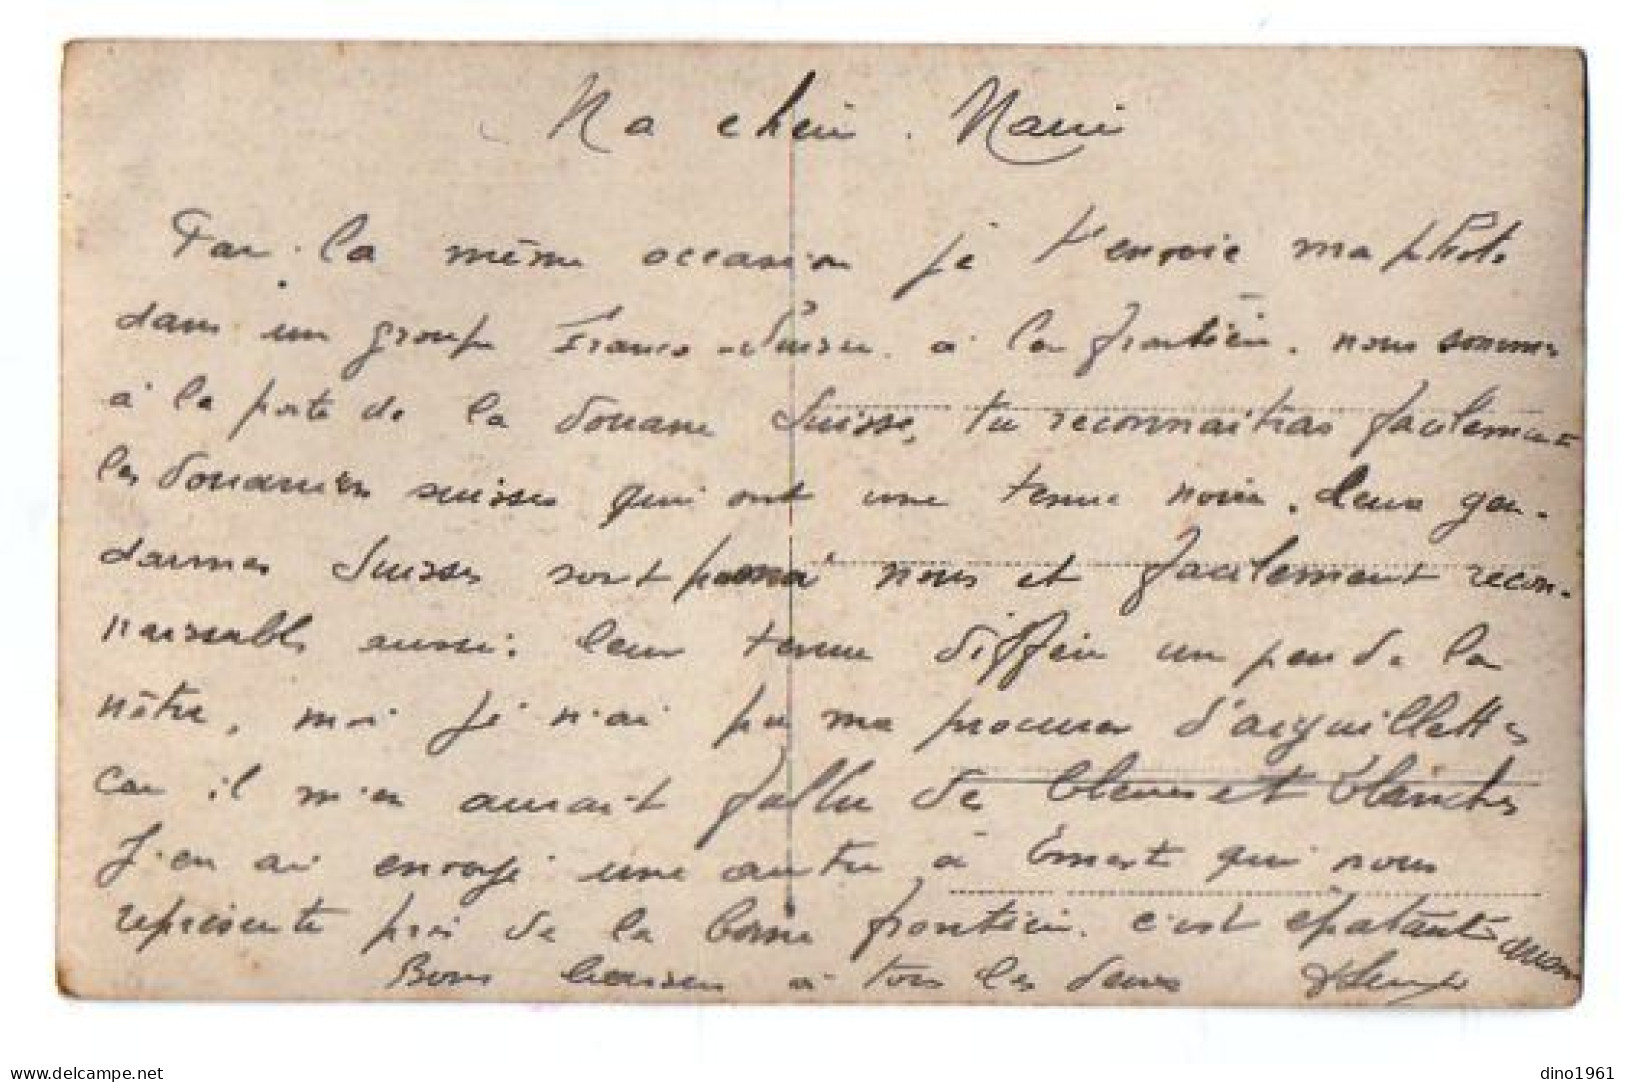 Ma chère Marie
Par la même occasion je t'envoie ma photo
dans un groupe Franco-Suisse à la frontière. nous sommes
à la porte de la douane Suisse, tu reconnaitras facilement
les douaniers suisses qui ont une tenue noire. deux gen-
darmes Suisses sont parmi nous et facilement recon-
naissable aussi. leur tenue diffère un peu de la
nôtre, moi je n'ai pu me procurer d'aiguillettes
car il m'en aurait fallu de bleues et blanches
J'en ai envoyé une autre à Ernest qui nous
représente près de la borne frontière. c'est épatant
Bons baisers à tous les deux
delcampe.net
dino1961